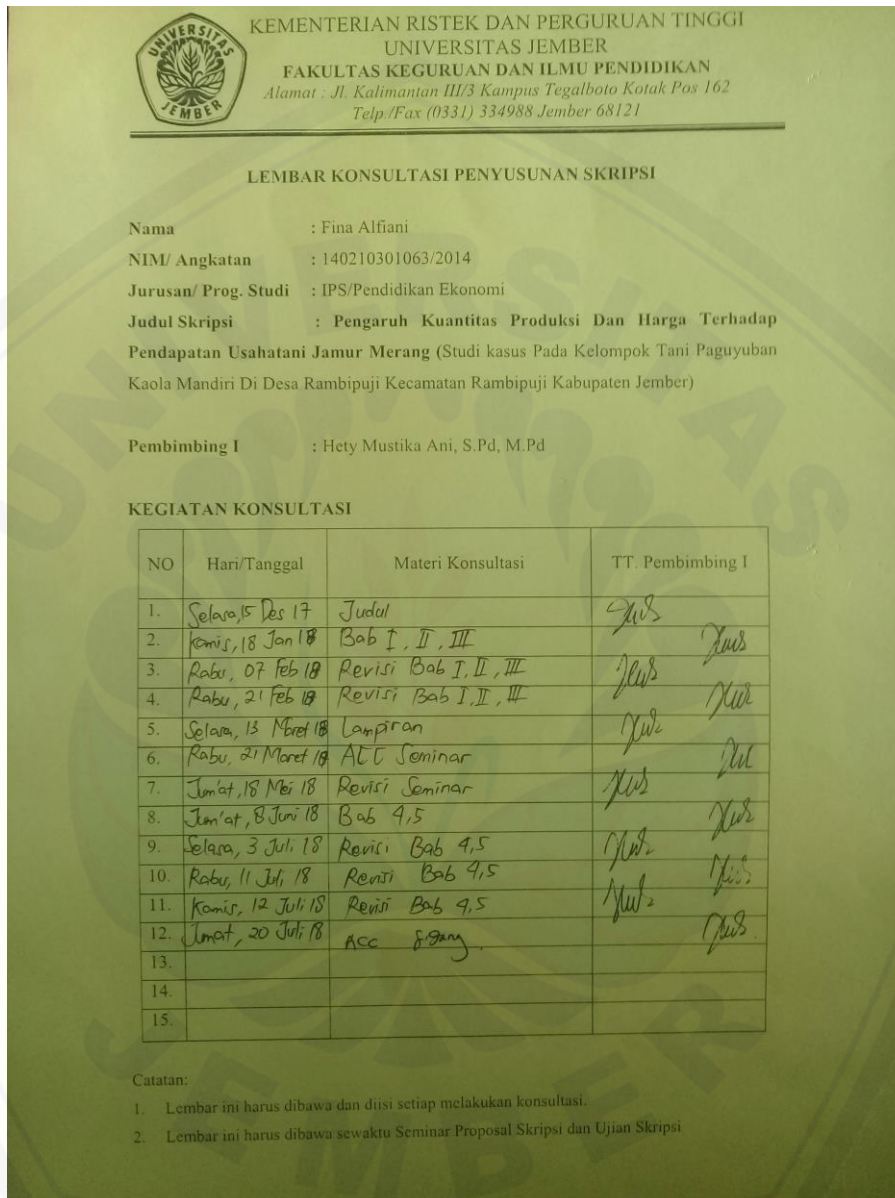 UNIVERSITAS JEMBER
KEMENTERIAN RISTEK DAN PERGURUAN TINGGI
UNIVERSITAS JEMBER
FAKULTAS KEGURUAN DAN ILMU PENDIDIKAN
Alamat : Jl. Kalimantan III/3 Kampus Tegalboto Kotak Pos 162
Telp./Fax (0331) 334988 Jember 68121
LEMBAR KONSULTASI PENYUSUNAN SKRIPSI
Nama : Fina Alfiani
NIM/ Angkatan : 140210301063/2014
Jurusan/ Prog. Studi : IPS/Pendidikan Ekonomi
Judul Skripsi : Pengaruh Kuantitas Produksi Dan Harga Terhadap
Pendapatan Usahatani Jamur Merang (Studi kasus Pada Kelompok Tani Paguyuban
Kaola Mandiri Di Desa Rambipuji Kecamatan Rambipuji Kabupaten Jember)
Pembimbing I : Hety Mustika Ani, S.Pd, M.Pd
KEGIATAN KONSULTASI
NO Hari/Tanggal Materi Konsultasi TT. Pembimbing I
1. Selasa, 15 Des 17 Judul
2. Kamis, 18 Jan 18 Bab I, II, III
3. Rabu, 07 Feb 18 Revisi Bab I, II, III
4. Rabu, 21 Feb 18 Revisi Bab I, II, III
5. Selasa, 13 Maret 18 Lampiran
6. Rabu, 21 Maret 18 ACC Seminar
7. Jum'at, 18 Mei 18 Revisi Seminar
8. Jum'at, 8 Juni 18 Bab 4,5
9. Selasa, 3 Juli 18 Revisi Bab 4,5
10. Rabu, 11 Juli 18 Revisi Bab 4,5
11. Kamis, 12 Juli 18 Revisi Bab 4,5
12. Jumat, 20 Juli 18 ACC Sidang.
13.
14.
15.
Catatan:
1. Lembar ini harus dibawa dan diisi setiap melakukan konsultasi.
2. Lembar ini harus dibawa sewaktu Seminar Proposal Skripsi dan Ujian Skripsi